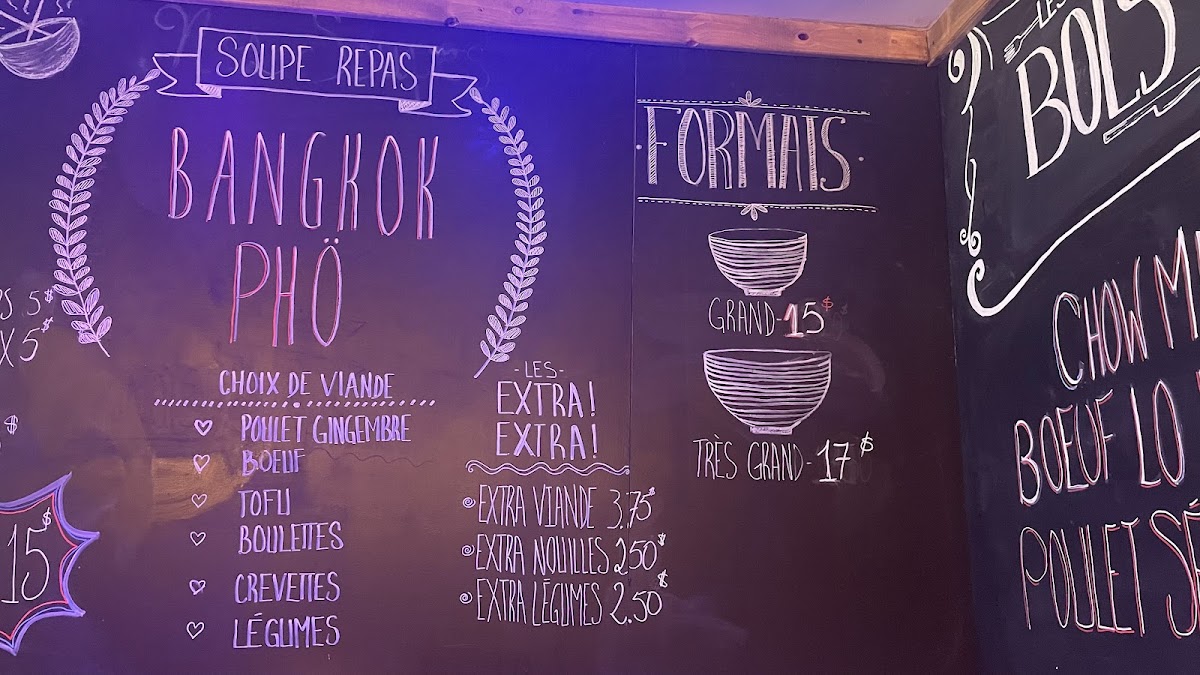 SOUPE REPAS
BANGKOK
PHÖ
CHOIX DE VIANDE
POULET GINGEMBRE
BOEUF
TOFU
BOULETTES
CREVETTES
LÉGUMES
-LES-
EXTRA!
EXTRA!
EXTRA VIANDE 3.75$
EXTRA NOUILLES 2.50$
EXTRA LÉGUMES 2.50$
FORMATS
GRAND-15$
TRÈS GRAND-17$
5$
X 5$
$
15$
LES
BOLS
CHOW
BOEUF LO
POULET